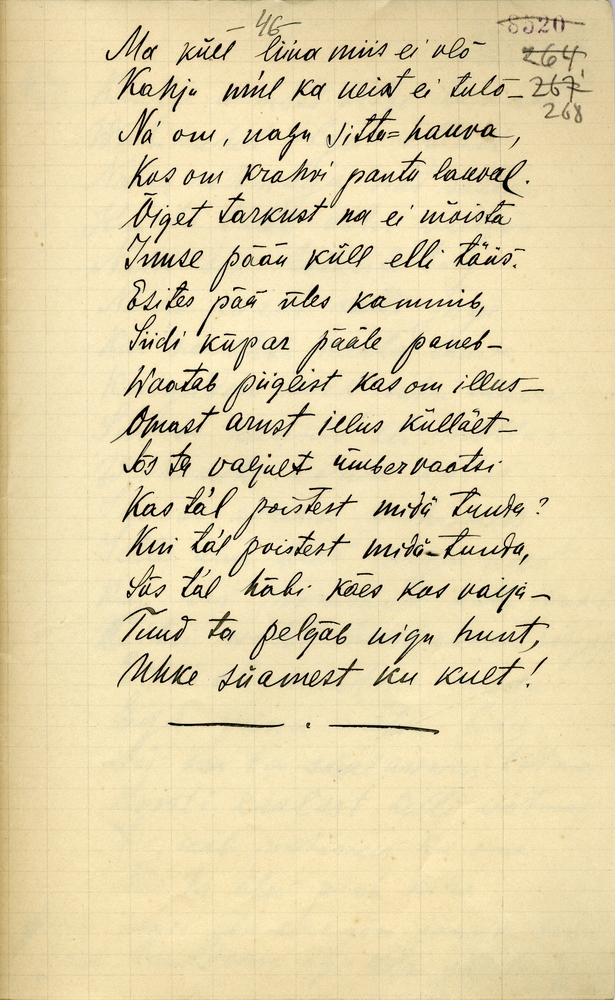 - 46 -
8520
264
267
268
Ma küll liina miis ei olõ
Kahju mul ka neiat ei tulõ -
Nä om, nagu sitta=hauva,
Kos om krahvi pantu lauval.
Õiget tarkust na ei mõista
Innse pään küll elli täüs.
Esites pää üles kammib,
Siidi küpar pääle paneb -
Waatab piiglist kas om illus -
Omast arust illus küllält -
Sõs ta valjult ümbervaatsi
Kas täl poistest midä tunda?
Kui täl poistest midä tunda,
Sõs täl häbi käes kos vaija -
Tuud ta pelgäb nigu hunt,
Uhke süamest ku kult!